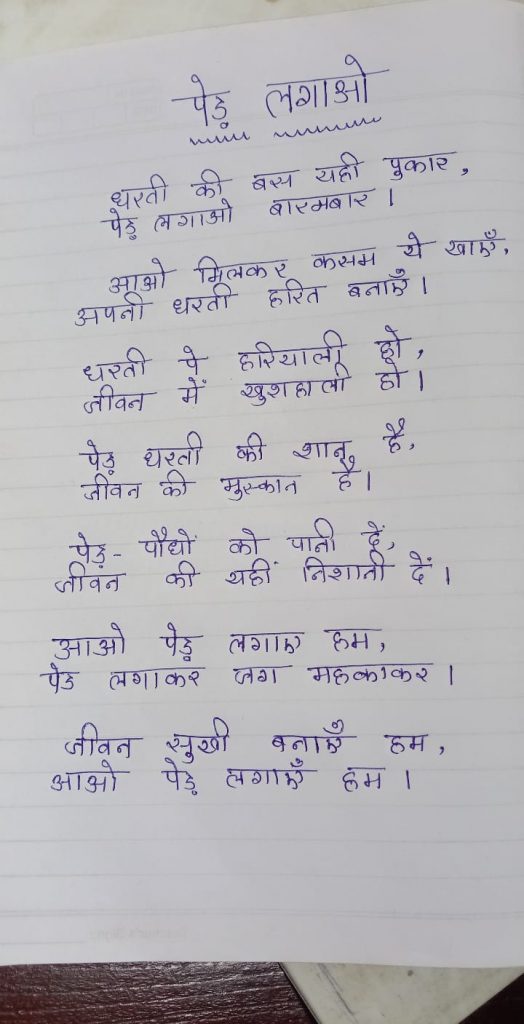 पेड़ लगाओ
धरती की बस यही पुकार,
पेड़ लगाओ बारमबार।
आओ मिलकर कसम ये खाएँ,
अपनी धरती हरित बनाएँ।
धरती पे हरियाली हो,
जीवन में खुशहाली हो।
पेड़ धरती की शान है,
जीवन की मुस्कान है।
पेड़-पौधों को पानी दें,
जीवन की यहीं निशानी दें।
आओ पेड़ लगाए हम,
पेड़ लगाकर जग महकाकर।
जीवन सुखी बनाएँ हम,
आओ पेड़ लगाएँ हम।